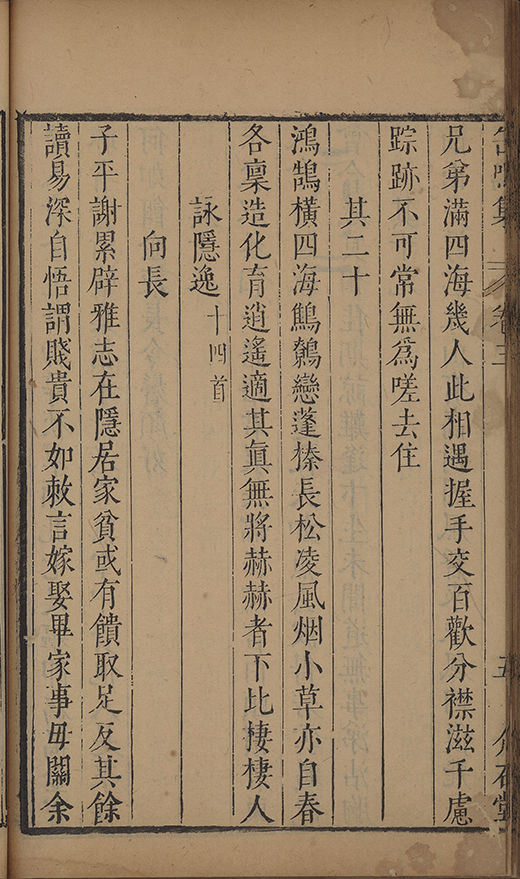 兄弟滿四海幾人此相遇握手交百歡分襟滋千慮
踪跡不可常無爲嗟去住
其二十
鴻鵠橫四海鷦鷯戀蓬榛長松凌風烟小草亦自春
各稟造化育逍遙適其眞無將赫赫者下比捿捿人
詠隱逸十四首
向長
子平謝累辟雅志在隱居家貧或有饋取足反其餘
讀易深自悟謂賤貴不如敕言嫁娶畢家事毋關余